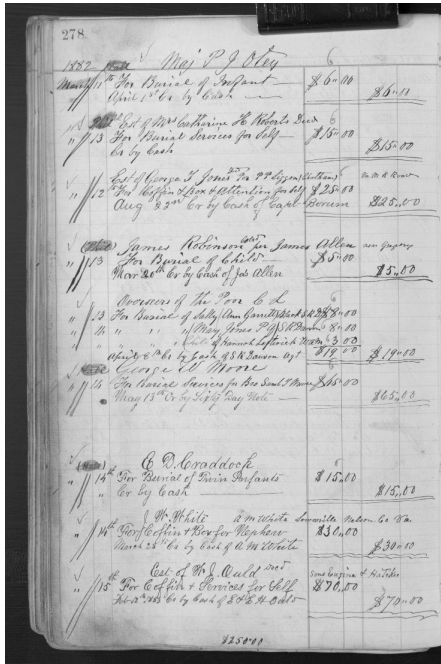 278
1882 Maj P J Otey 6
March 11th For Burial of Infant $6.00
April 1st Cr by Cash $6.00
Est of Mrs Catherine H Roberts Decd 6
" 13 For Burial Services for Self $15.00
Cr by Cash $15.00
Est of George T Jones Per P P
" 12th For Coffin & Box & Attention for Self $25.00
Aug 22nd Cr by Cash of Capt Borum $25.00
James Robinson Cold per James Allen
" 13 For Burial of Child $5.00
Mar 20th Cr by Cash of Jas Allen $5.00
Overseers of the Poor C L 6
" 13 For Burial of Sally Ann Garrett 8.00
" 14 " " " Mary Jones 8.00
Child of Hannah 3.00
April 8th Cr by Cash of S R Dawson Agt $19.00 $19.00
George W Moore 6
" 14 For Burial Services for Bro Saml T Moore $65.00
May 13th Cr by Sixty Day Note $65.00
E D Craddock 6
" 14th For Burial of Twin Infants $15.00
" Cr by Cash $15.00
J W White A M White Nelson Co Va
" 14th For Coffin & Box for Nephew $30.00
March 25th Cr by Cash of A M White $30.00
Est of W J Ould Decd
" 15th For Coffin & Services for Self $70.00
Cr by Cash of E & E H Ould $70.00
$250.00